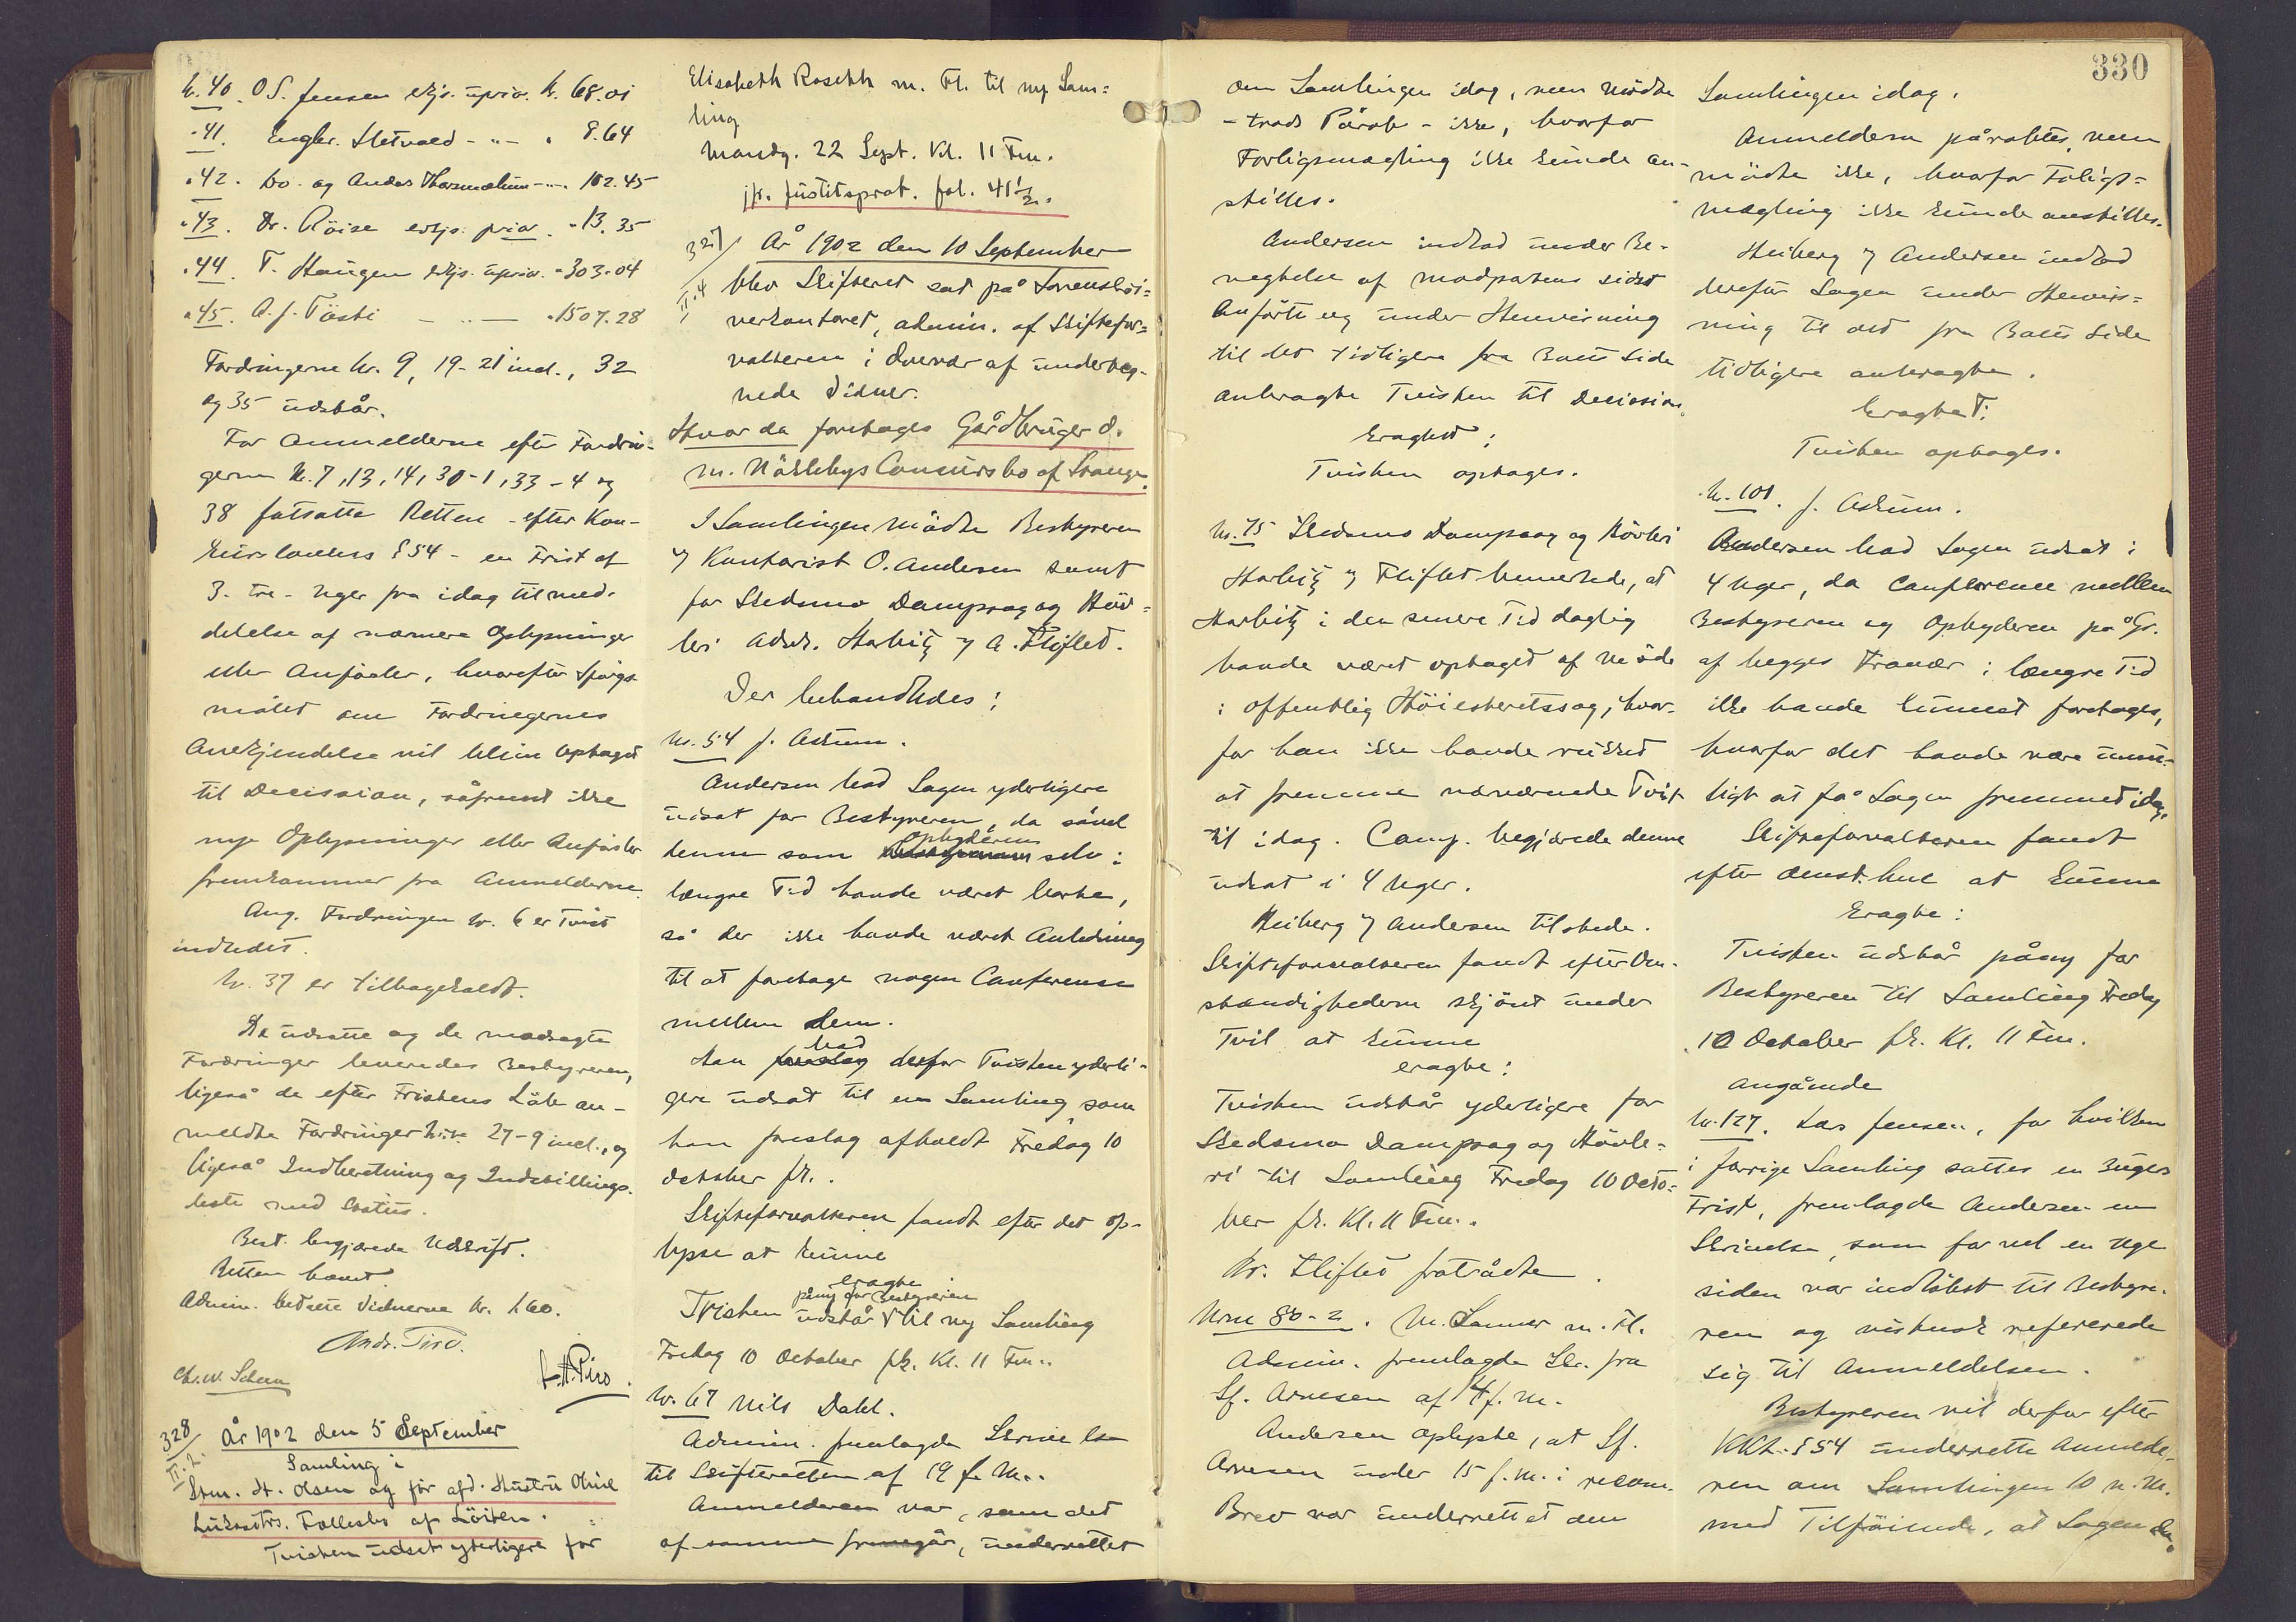 N. 40. O S. Jensen exp. upriv. Kr. 68.01
" 41. Engbr. Sletvold - " - " 8.64
" 42. Do. og Anders Thorsmælum - " - 102.45
" 43. Dr. Röise exp. priv. " 13.35
" 44. T. Haugen exp. upriv. " 303.04
" 45. A. J. Tösti - " - " 1507.28
Fordringerne Nr. 9, 19-21 incl., 32
og 35 udstår.
For Anmelderne efter Fordrin-
gerne Nr. 7, 13, 14, 30-1, 33-4 og
38 fatsatte Retten - efter Kon-
kurslovens § 54 - en Frist af
3 - tre - Uger fra idag til med-
delelse af nærmere Oplysninger
eller Anförsler, hvorefter Spörgs-
målet om Fordringernes
Anerkjendelse vil blive optaget
til Decission, såfremt ikke
nye Oplysninger eller Anförsler
fremkommer fra Anmelderne.
Ang. Fordringen Nr. 6 er Tvist
indledet.
Nr. 37 er tilbagekaldt.
De udsatte og de modsagte
Fordringer leveredes Bestyreren,
ligeså de efter Fristens Löb an-
meldte Fordringer 27-9 incl., og
ligeså Indberetning og Indstillings-
liste med Status.
Best. begjærede Udskrift.
Retten hævet.
Admin. betalte Vidnerne Kr. 1.60.
Andr. Tiro.
Chr. W. Scheen
328 År 1902 den 5 September
Samling i
H. Olsen og för afd. Hustru Oline
Fællesbo af Löiten.
Tvisten udsat yderligere for
Elisabeth Roseth m. Fl. til ny Sam-
ling
Mandg. 22 Sept. Kl. 11 Fm.
jfr. Justitsprot. fol. 41 1/2.
329 År 1902 den 10 September
blev Skifteret sat på Sorenskri-
verkontoret, admin. af Skiftefor-
valteren i Overvær af underteg-
nede Vidner.
Hvor da foretages Gårdbruger O.
M. Nökklebys Concursbo af Stange.
I Samlingen mödte Bestyreren
v/ Kontorist O. Andersen samt
for Skedsmo Dampsag og Höv-
leri Advk. Harbitz v/ A. Fliflet.
Der behandledes:
Nr. 54 J. Askum.
Andersen bad Sagen yderligere
udsat for Bestyreren, da såvel
denne som Opbyderen selv i
længre Tid havde været borte,
så der ikke havde været Anledning
til at foretage nogen Conference
mellem dem.
Han bad derfor Tvisten yderli-
gere udsat til en Samling som
han foreslog afholdt Fredag 10
October fk..
Skifteforvalteren fandt efter det op-
lyste at kunne
eragte:
Tvisten udstår påny for Bestyreren til ny Samling
Fredag 10 October fk. Kl. 11 Fm..
Nr. 67 Nils Dahl.
Admin. fremlagde Skrivelse
til Skifteretten af 19 f. M..
Anmelderen var, som det
af samme fremgår, underrettet
om Samlingen idag, men mödte
- trods Påråb - ikke, hvorfor
Forligsmægling ikke kunde an-
stilles.
Andersen indlod under Be-
negtelse af Modpartens sidst
Anförte og under Henvisning
til det tidligere fra Boets Side
anbragte Tvisten til Decission.
Eragtet:
Tvisten optages.
Nr. 75 Skedsmo Dampsag og Hövleri
Harbitz v/ Fliflet bemerkede, at
Harbitz i den senere Tid daglig
havde været optaget af Möde
i offentlig Höiesteretssag, hvor-
for han ikke havde rukket
at fremme nærværende Tvist
til idag. Comp. begjærede denne
udsat i 4 Uger.
Heiberg v/ Andersen tilstede.
Skifteforvalteren fandt efter Om-
stændighederne skjönt under
Tvil at kunne
eragte:
Tvisten udstår yderligere for
Skedsmo Dampsag og Hövle-
ri til Samling Fredag 10 Octo-
ber fk. Kl. 11 Fm..
Hr. Fliflet fratrådte.
Nrne 80-2. M. Sanner m. Fl.
Admin. fremlagde Skr. fra
Sf. Arnesen af 14 f. M.
Andersen oplyste, at Sf.
Arnesen under 15 f. M. i recom.
Brev var underrettet om
330
Samlingen idag.
Anmelderen påråbtes, men
mödte ikke, hvorfor Forligs-
mægling ikke kunde anstilles.
Heiberg v/ Andersen indlod
derefter Sagen under Henvis-
ning til det fra Boets Side
tidligere anbragte.
Eragtet:
Tvisten optages.
Nr. 101. J. Askum.
Andersen bad Sagen udsat i
4 Uger, da Conference mellem
Bestyreren og Opbyderen på Gr.
af begges Fravær i længre Tid
ikke havde kunnet foretages,
hvorfor det havde være umu-
ligt at få Sagen fremmet idag.
Skifteforvalteren fandt
efter Omst. hee at kunne
Eragte:
Tvisten udstår påny for
Bestyreren til Samling Fredag
10 October fk. Kl. 11 Fm.
Angående
Nr. 127. Lars Jensen, for hvilken
i forrige Samling sattes en 3 Ugers
Frist, fremlagde Andersen en
Skrivelse, som for vel en Uge
siden var indlöbet til Bestyre-
ren og refererede
sig til Anmeldelsen.
Bestyreren vil derfor efter
KKL. § 54 underrette Anmelde-
ren om Samlingen 10 n. M.
med Tilföiende, at Sagen da